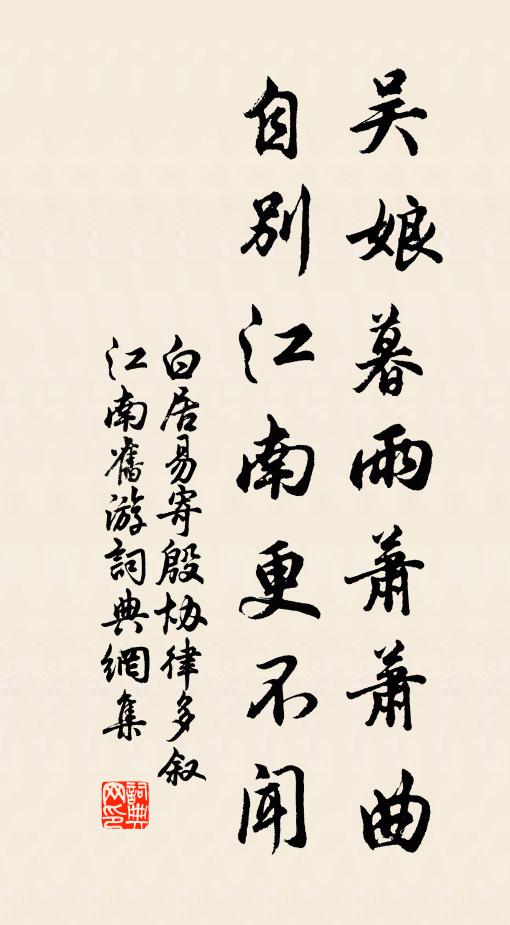 吴娘暮雨萧萧曲
自别江南更不闻
白居易寄殷协律多叙
江南舊游詞典網集
詞典
网印